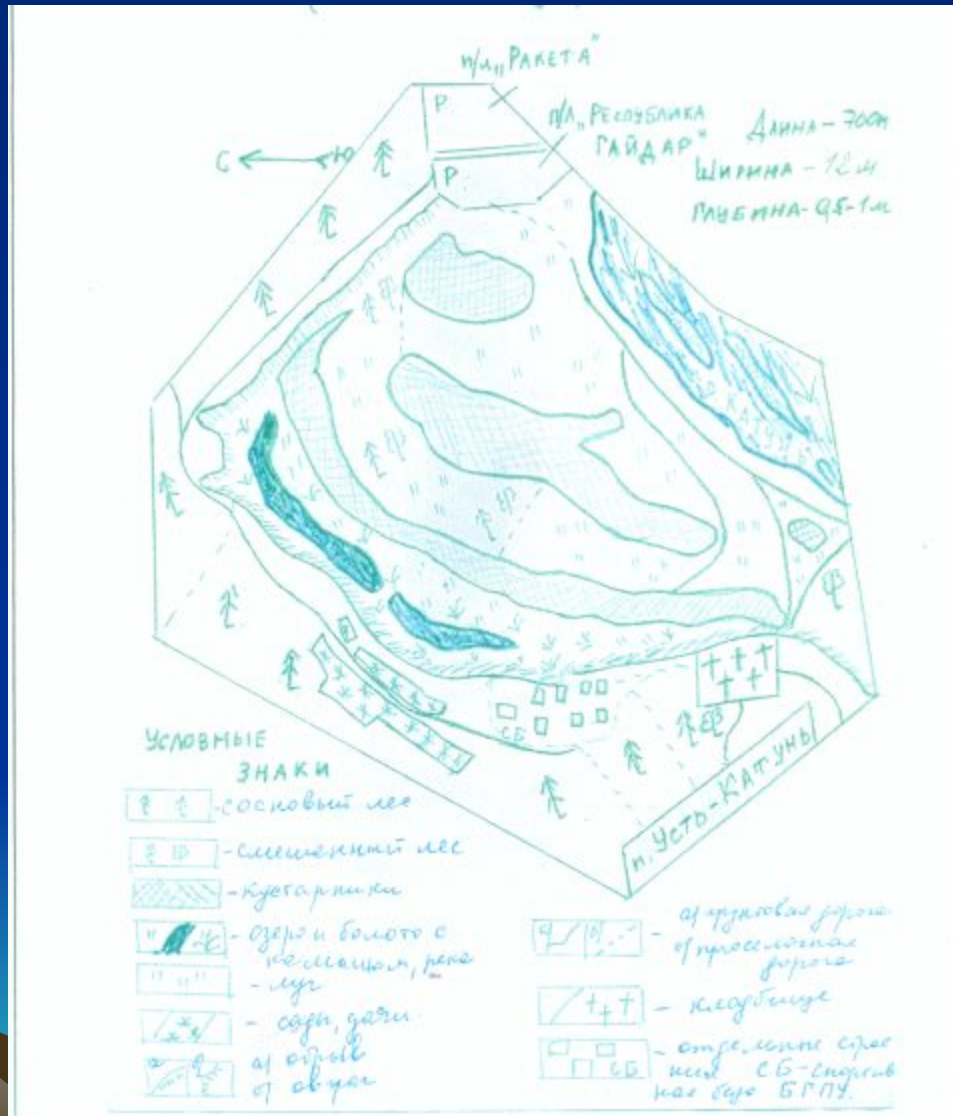 п/л „РАКЕТА"
п/л „РЕСПУБЛИКА
ГАЙДАР"
ДЛИНА - 700м
ШИРИНА - 12 м
ГЛУБИНА - 0,5-1м
С Ю
Р
Р
КАТУНЬ
СБ
п. УСТЬ-КАТУНЬ
УСЛОВНЫЕ
ЗНАКИ
- сосновый лес
- смешенный лес
- кустарники
- озеро и болото с
камышом, река
- луг
- сады, дачи
а) обрыв
б) овраг
а) грунтовая дорога
б) проселочная
дорога
- кладбище
- отдельные строе
ния СБ-спортив
ная база БГПУ.
СБ